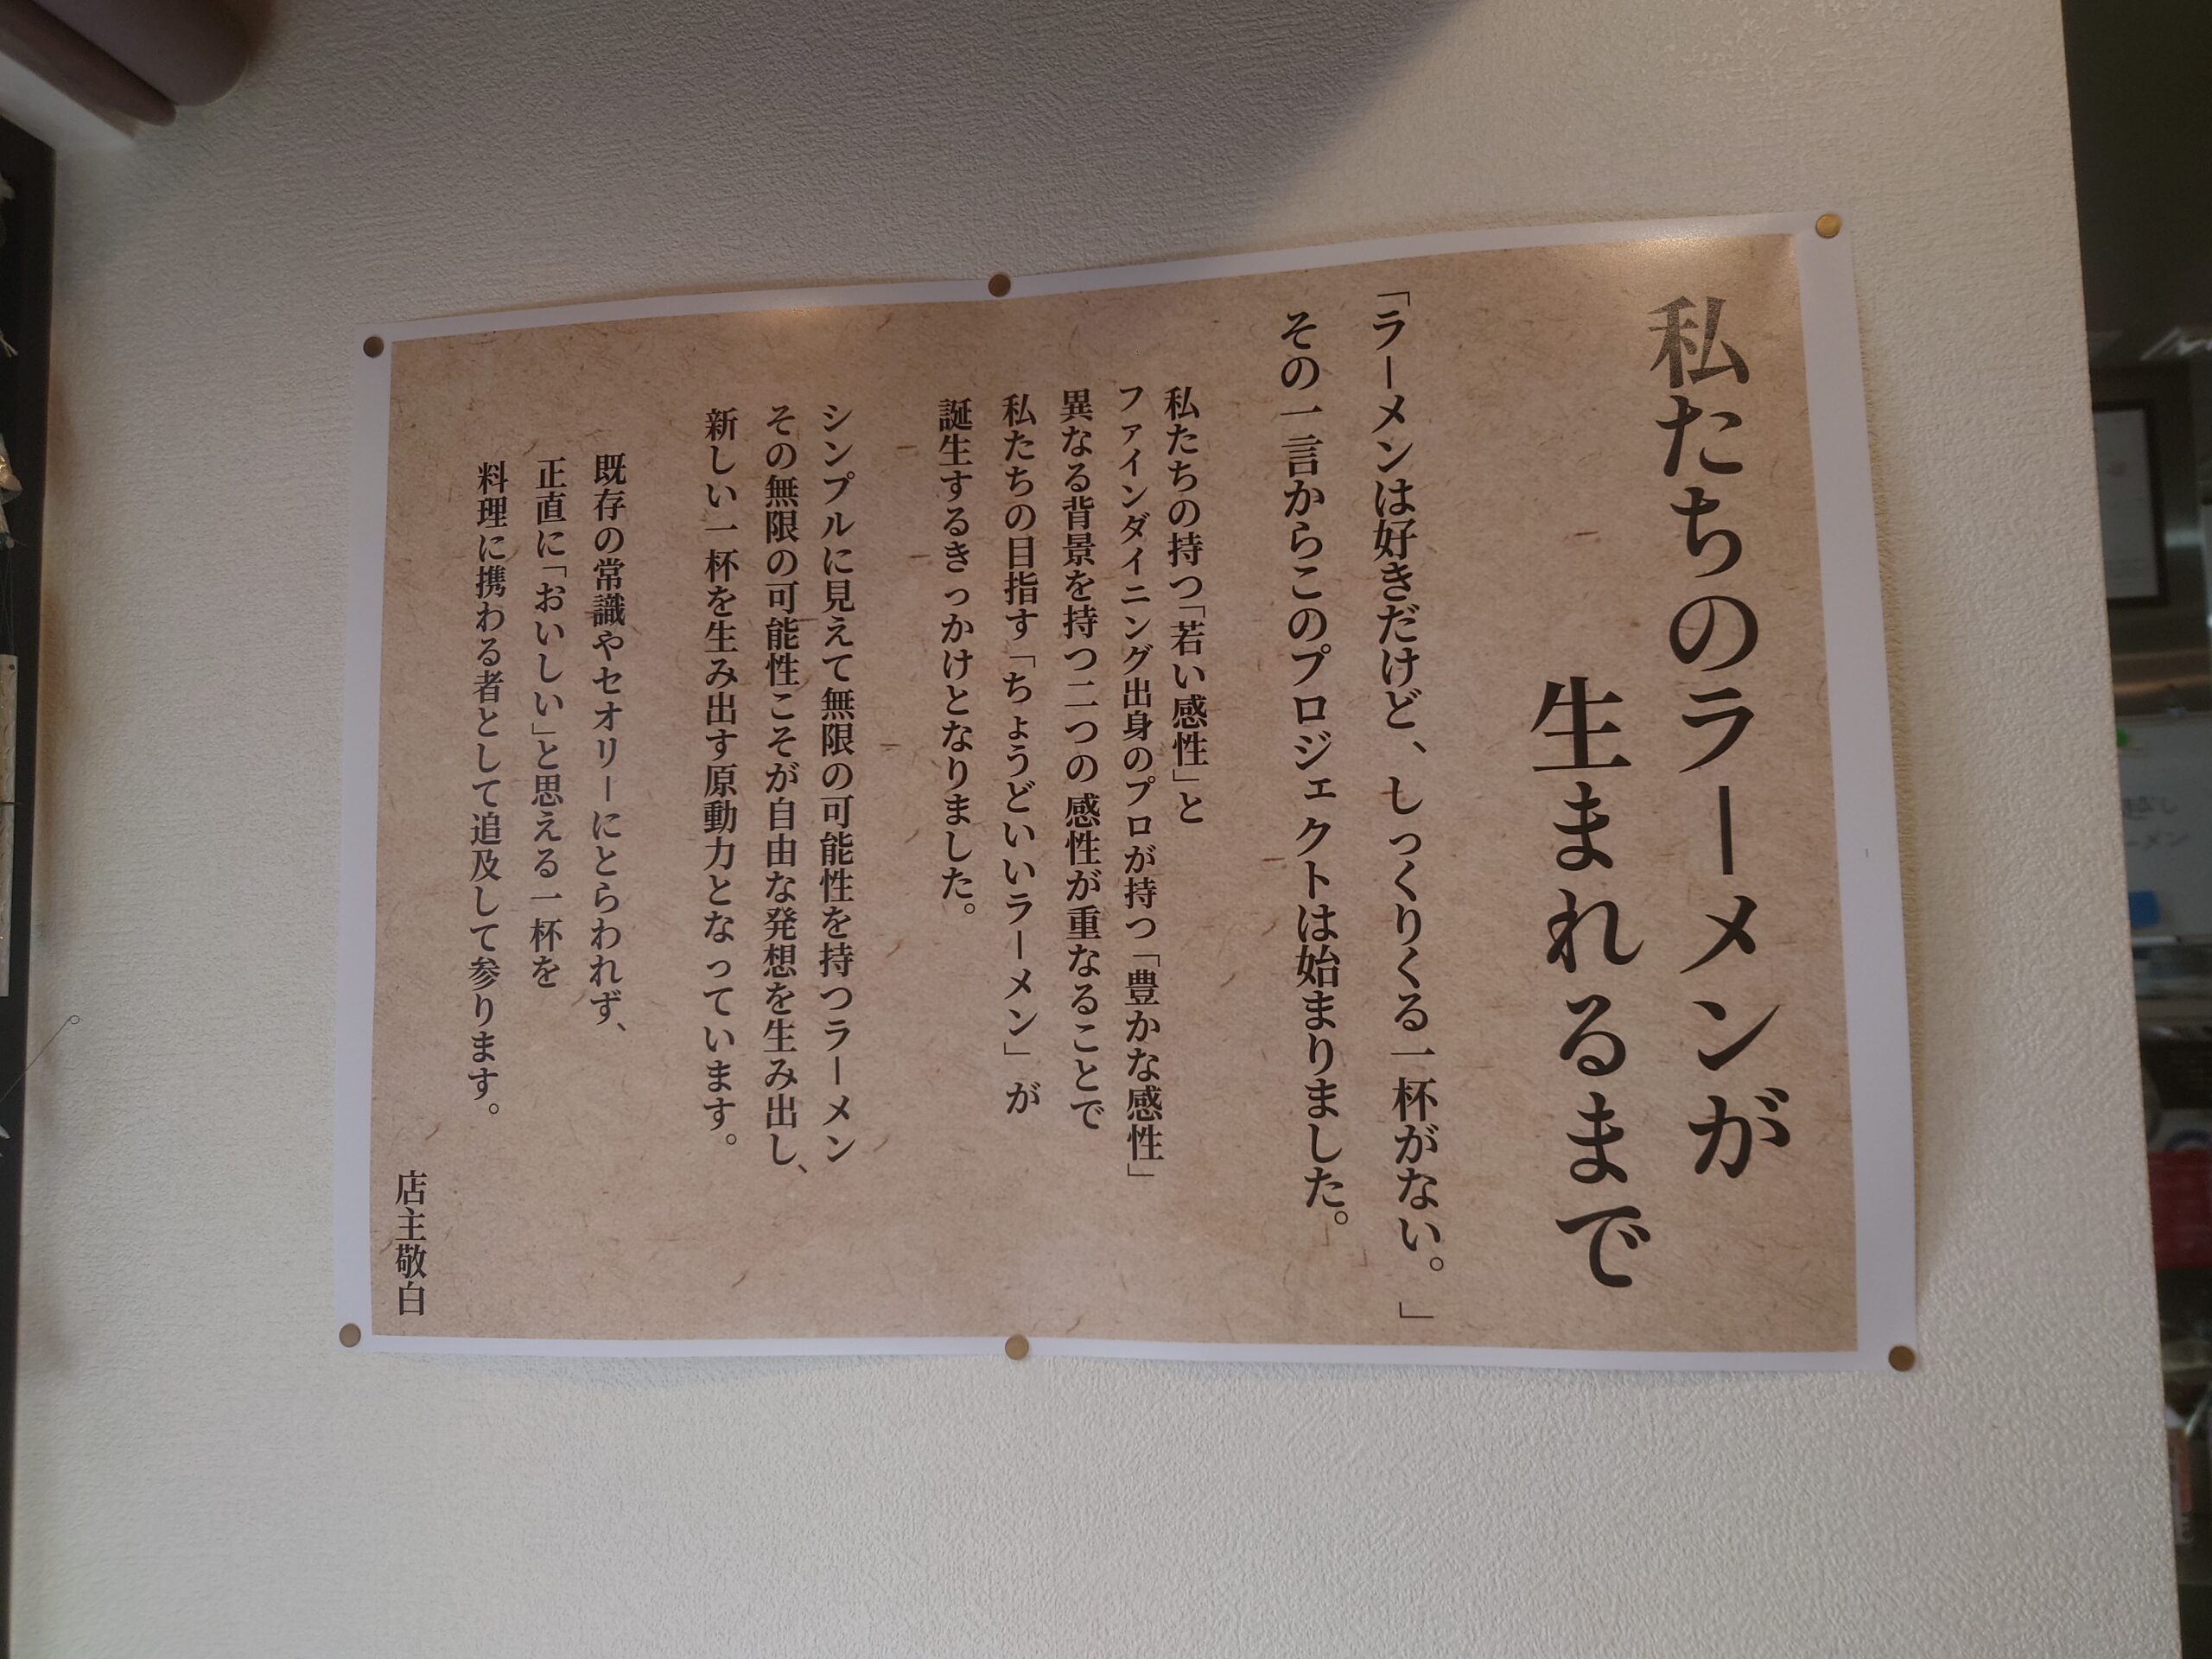 私たちのラーメンが
生まれるまで
「ラーメンは好きだけど、しっくりくる一杯がない。」
その一言からこのプロジェクトは始まりました。
私たちの持つ「若い感性」と
ファインダイニング出身のプロが持つ「豊かな感性」
異なる背景を持つ二つの感性が重なることで
私たちの目指す「ちょうどいいラーメン」が
誕生するきっかけとなりました。
シンプルに見えて無限の可能性を持つラーメン
その無限の可能性こそが自由な発想を生み出し、
新しい一杯を生み出す原動力となっています。
既存の常識やセオリーにとらわれず、
正直に「おいしい」と思える一杯を
料理に携わる者として追及して参ります。
店主敬白